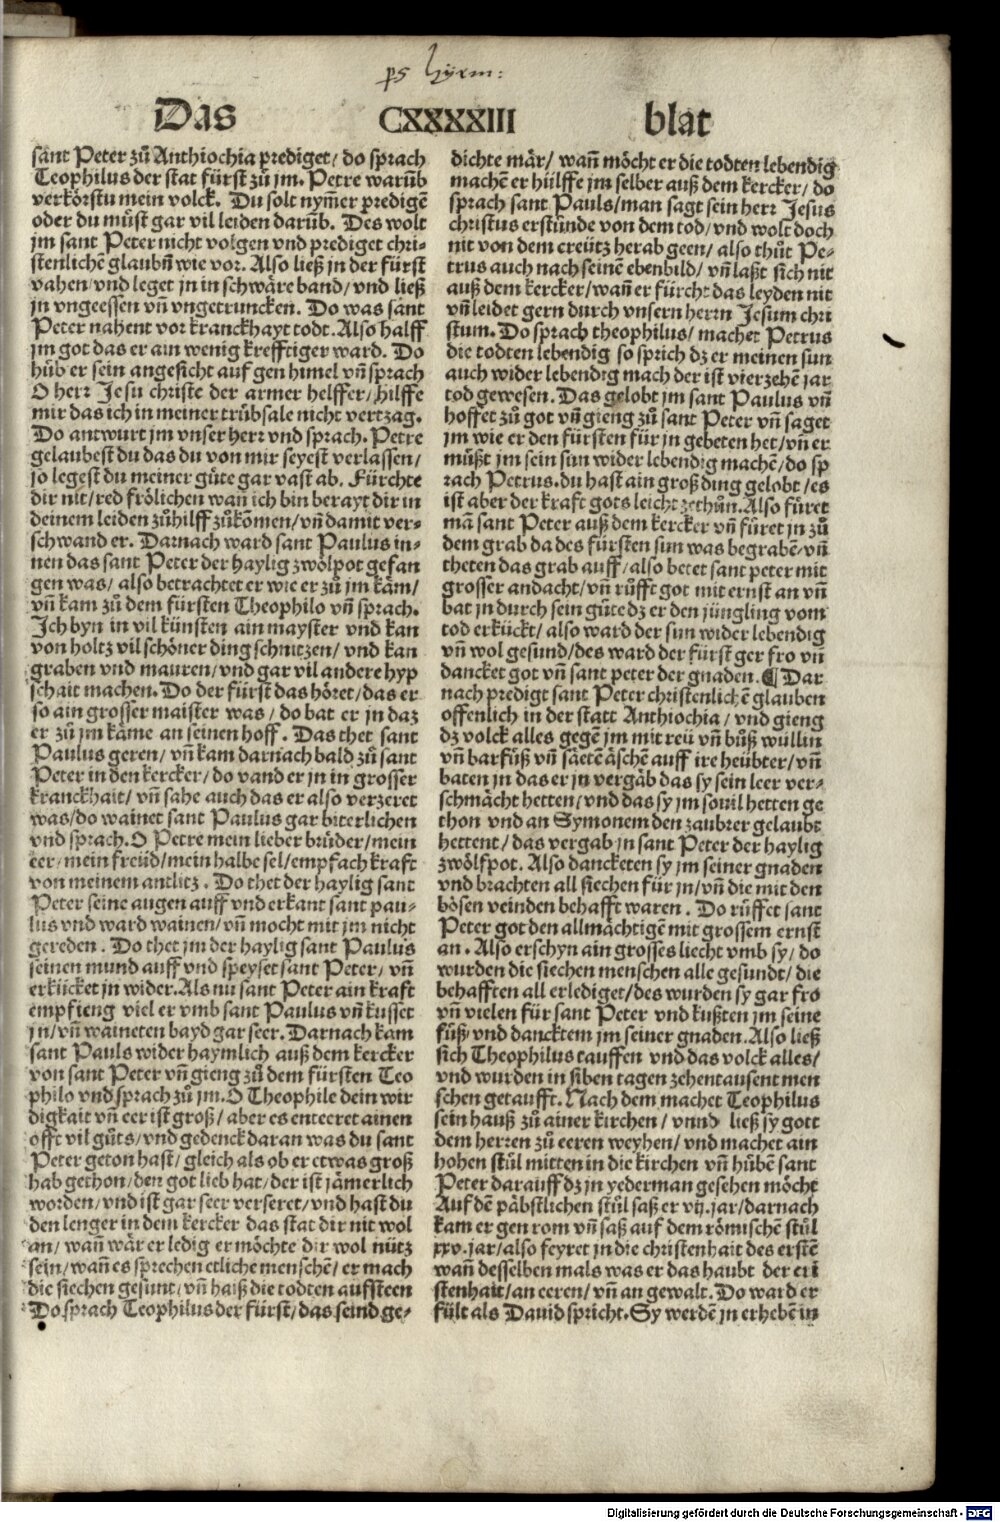 ps hyem:
Das CXXXXIII blat
sant Peter zů Anthiochia prediget/ do sprach
Teophilus der stat fürst zů jm. Petre warůb
verkörstu mein volck. Du solt nym̃er predigẽ
oder du můst gar vil leiden darũb. Des wolt
jm sant Peter nicht volgen vnd prediget chri⸗
stenlichẽ glaubñ wie vor. Also ließ jn der fürst
vahen/ vnd leget jn in schwäre band/ vnd ließ
jn vngeessen vñ vngetruncken. Do was sant
Peter nahent vor kranckhayt todt. Also halff
jm got das er ain wenig krefftiger ward. Do
hůb er sein angesicht auf gen himel vñ sprach
O herr Jesu christe der armer helffer/ hilffe
mir das ich in meiner trübsale nicht vertzag.
Do antwurt jm vnser herr vnd sprach. Petre
gelaubest du das du von mir seyest verlassen/
so legest du meiner güte gar vast ab. Fürchte
dir nit/ red frölichen wañ ich bin berayt dir in
deinem leiden zůhilff zůkõmen/ vñ damit ver⸗
schwand er. Darnach ward sant Paulus in⸗
nen das sant Peter der haylig zwölpot gefan
gen was/ also betrachtet er wie er zů jm käm/
vñ kam zů dem fürsten Theophilo vñ sprach.
Ich byn in vil künsten ain mayster vnd kan
von holtz vil schöner ding schnitzen/ vnd kan
graben vnd mauren/ vnd gar vil andere hyp
schait machen. Do der fürst das höret/ das er
so ain grosser maister was/ do bat er jn daz
er zů jm käme an seinen hoff. Das thet sant
Paulus geren/ vñ kam darnach bald zů sant
Peter in den kercker/ do vand er jn in grosser
kranckhait/ vñ sahe auch das er also verzeret
was/ do wainet sant Paulus gar biterlichen
vnd sprach. O Petre mein lieber brůder/ mein
eer/ mein freüd/ mein halbe sel/ empfach kraft
von meinem antlitz. Do thet der haylig sant
Peter seine augen auff vnd erkant sant pau⸗
lus vnd ward wainen/ vñ mocht mit jm nicht
gereden. Do thet jm der haylig sant Paulus
seinen mund auff vnd speyset sant Peter/ vñ
erkücket jn wider. Als nu sant Peter ain kraft
empfieng viel er vmb sant Paulus vñ kusset
jn/ vñ waineten bayd gar seer. Darnach kam
sant Pauls wider haymlich auß dem kercker
von sant Peter vñ gieng zů dem fürsten Teo
philo vnd sprach zů jm. O Theophile dein wir
digkait vñ eer ist groß/ aber es enteeret ainen
offt vil gůts/ vnd gedenck daran was du sant
Peter geton hast/ gleich als ob er etwas groß
hab gethon/ den got lieb hat/ der ist jämerlich
worden/ vnd ist gar seer verseret/ vnd hast du
den lenger in dem kercker das stat dir nit wol
an/ wañ wär er ledig er möchte dir wol nütz
sein/ wañ es sprechen etliche menschẽ/ er mach
die siechen gesunt/ vñ haiß die todten aufsteen
Do sprach Teophilus der fürst/ das seind ge⸗
dichte mär/ wañ möcht er die todten lebendig
machẽ er hülffe jm selber auß dem kercker/ do
sprach sant Pauls/ man sagt sein herr Jesus
christus erstünde von dem tod/ vnd wolt doch
nit von dem creütz herab geen/ also thůt Pe⸗
trus auch nach seinẽ ebenbild/ vñ laßt sich nit
auß dem kercker/ wañ er fürcht das leyden nit
vñ leidet gern durch vnsern herrn Jesum chri
stum. Do sprach theophilus/ machet Petrus
die todten lebendig so sprich dz er meinen sun
auch wider lebendig mach der ist vierzehẽ jar
tod gewesen. Das gelobt jm sant Paulus vñ
hoffet zů got vñ gieng zů sant Peter vñ saget
jm wie er den fürsten für jn gebeten het/ vñ er
můßt jm sein sun wider lebendig machẽ/ do sp
rach Petrus. du hast ain groß ding gelobt/ es
ist aber der kraft gots leicht zethůn. Also füret
mã sant Peter auß dem kercker vñ füret jn zů
dem grab da des fürsten sun was begrabẽ/ vñ
theten das grab auff/ also betet sant peter mit
grosser andacht/ vñ růfft got mit ernst an vñ
bat jn durch sein güte dz er den jüngling vom
tod erkückt/ also ward der sun wider lebendig
vñ wol gesund/ des ward der fürst ger fro vñ
dancket got vñ sant peter der gnaden. ¶ Dar
nach predigt sant Peter christenlichẽ glauben
offenlich in der statt Anthiochia/ vnd gieng
dz volck alles gegẽ jm mit reü vñ bůß wüllin
vñ barfůß vñ säetẽ äschẽ auff ire heübter/ vñ
baten jn das er jn vergäb das sy sein leer ver⸗
schmächt hetten/ vnd das sy jm souil hetten ge
thon vnd an Symonem den zaubrer gelaubt
hettent/ das vergab jn sant Peter der haylig
zwölfpot. Also dancketen sy jm seiner gnaden
vnd brachten all siechen für jn/ vñ die mit den
bösen veinden behafft waren. Do růffet sant
Peter got den allmächtigẽ mit grossem ernst
an. Also erschyn ain grosses liecht vmb sy/ do
wurden die siechen menschen alle gesundt/ die
behafften all erlediget/ des wurden sy gar fro
vñ vielen für sant Peter vnd kußten jm seine
füß/ vnd dancktem jm seiner gnaden. Also ließ
sich Theophilus tauffen vnd das volck alles/
vnd wurden in siben tagen zehentausent men
schen getaufft. Nach dem machet Teophilus
sein hauß zů ainer kirchen/ vnnd ließ sy gott
dem herren zů eeren weyhen/ vnd machet ain
hohen stůl mitten in die kirchen vñ hůbẽ sant
Peter darauff dz jn yederman gesehen möcht
Auf dẽ päbstlichen stůl saß er vij. jar/ darnach
kam er gen rom vñ saß auf dem römischẽ stůl
xxv. jar/ also feyret jn die christenhait des erstẽ
wañ desselben mals was er das haubt der cri
stenhait/ an eeren/ vñ an gewalt. Do ward er
fült als Dauid spricht. Sy werdẽ jn erhebẽ in
Digitalisierung gefördert durch die Deutsche Forschungsgemeinschaft - DFG